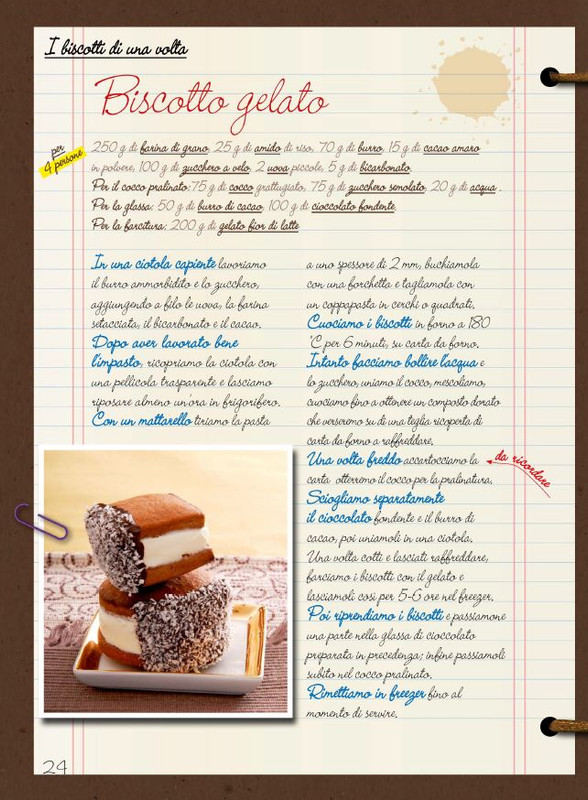 I biscotti di una volta
Biscotto gelato
per
4 persone
250 g di farina di grano, 25 g di amido di riso, 70 g di burro, 15 g di cacao amaro
in polvere, 100 g di zucchero a velo, 2 uova piccole, 5 g di bicarbonato.
Per il cocco pralinato: 75 g di cocco grattugiato, 75 g di zucchero semolato, 20 g di acqua.
Per la glassa: 50 g di burro di cacao, 100 g di cioccolato fondente.
Per la farcitura: 200 g di gelato fior di latte
In una ciotola capiente lavoriamo
il burro ammorbidito e lo zucchero,
aggiungendo a filo le uova, la farina
setacciata, il bicarbonato e il cacao.
Dopo aver lavorato bene
l'impasto, ricopriamo la ciotola con
una pellicola trasparente e lasciamo
riposare almeno un'ora in frigorifero.
Con un mattarello tiriamo la pasta
a uno spessore di 2 mm, buchiamola
con una forchetta e tagliamola con
un coppapasta in cerchi o quadrati.
Cuociamo i biscotti in forno a 180
°C per 6 minuti, su carta da forno.
Intanto facciamo bollire l'acqua e
lo zucchero, uniamo il cocco, mescoliamo,
cuociamo fino a ottenere un composto dorato
che verseremo su di una teglia ricoperta di
carta da forno a raffreddare.
Una volta freddo accartocciamo la
carta otterremo il cocco per la pralinatura.
da ricordare
Sciogliamo separatamente
il cioccolato fondente e il burro di
cacao, poi uniamoli in una ciotola.
Una volta cotti e lasciati raffreddare,
farciamo i biscotti con il gelato e
lasciamoli così per 5-6 ore nel freezer.
Poi riprendiamo i biscotti e passiamone
una parte nella glassa di cioccolato
preparata in precedenza; infine passiamoli
subito nel cocco pralinato.
Rimettiamo in freezer fino al
momento di servire.
24